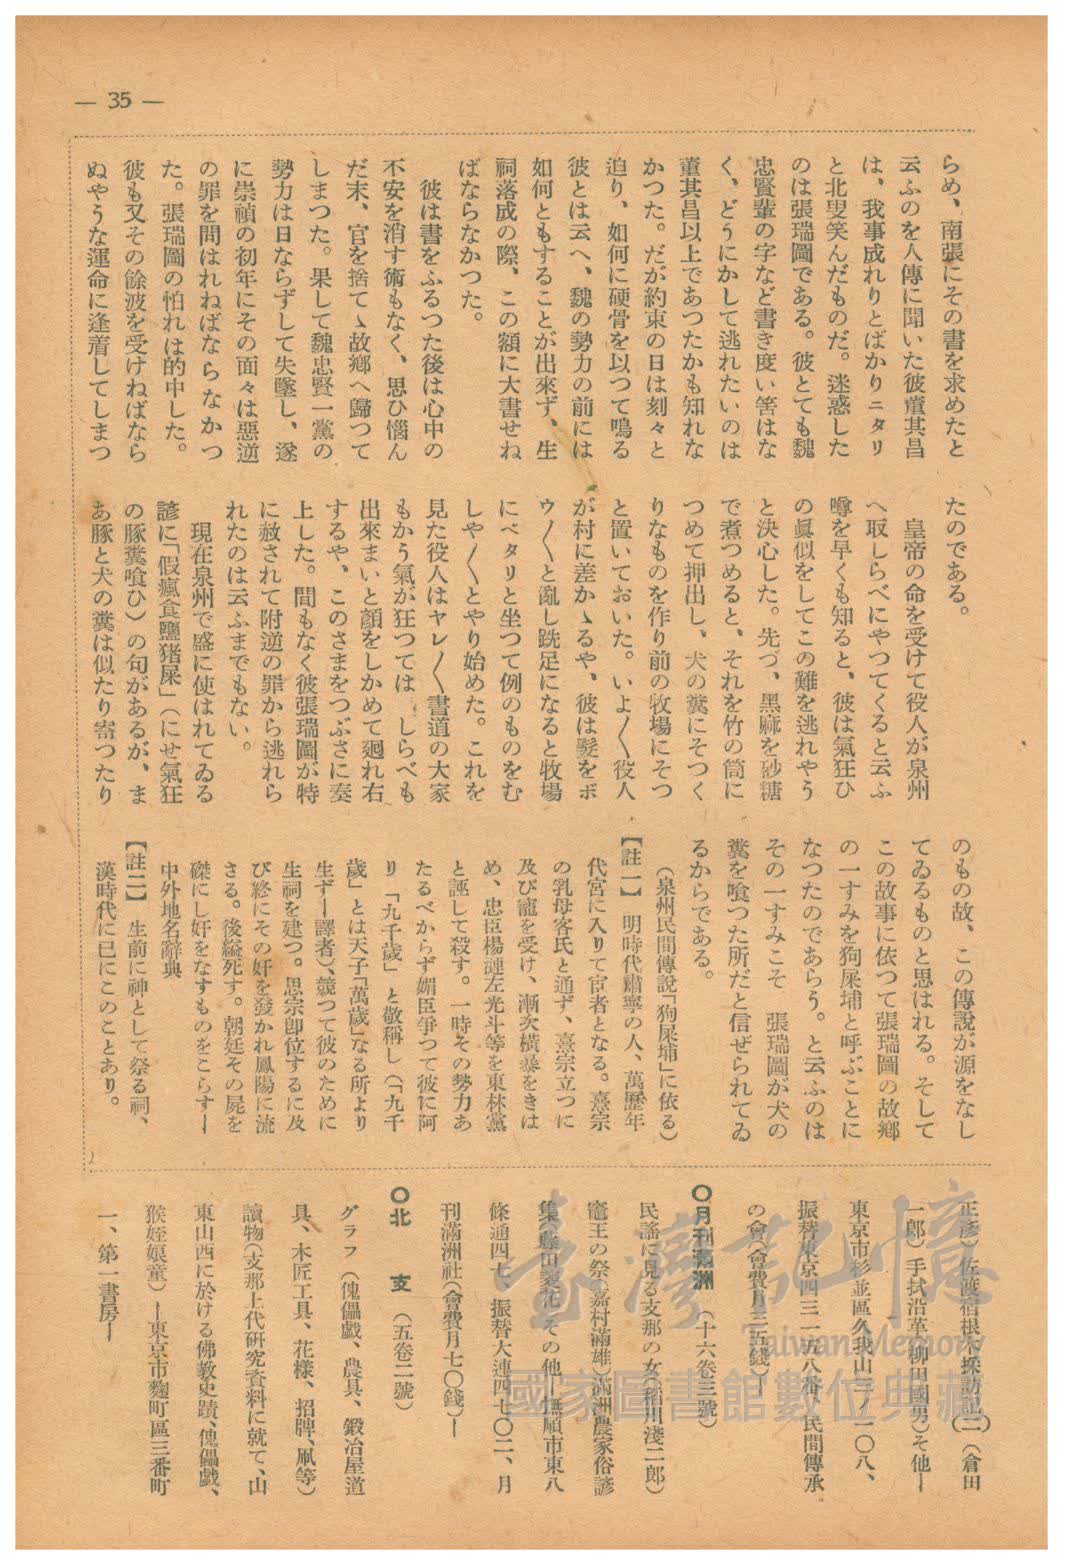 — 35 —
らめ、南張にその書を求めたと
云ふのを人傳に聞いた彼董其昌
は、我事成れりとばかりニタリ
と北叟笑んだものだ。迷惑した
のは張瑞圖である。彼とても魏
忠賢輩の字など書き度い筈はな
く、どうにかして逃れたいのは
董其昌以上であつたかも知れな
かつた。だが約束の日は刻々と
迫り、如何に硬骨を以つて鳴る
彼とは云へ、魏の勢力の前には
如何ともすることが出來ず、生
祠落成の際、この額に大書せね
ばならなかつた。
彼は書をふるつた後は心中の
不安を消す術もなく、思ひ惱ん
だ末、官を捨てゝ故鄕へ歸つて
しまつた。果して魏忠賢一黨の
勢力は日ならずして失墜し、遂
に崇禎の初年にその面々は惡逆
の罪を問はれねばならなかつ
た。張瑞圖の怕れは的中した。
彼も又その餘波を受けねばなら
ぬやうな運命に逢着してしまつ
たのである。
皇帝の命を受けて役人が泉州
へ取しらべにやつてくると云ふ
噂を早くも知ると、彼は氣狂ひ
の眞似をしてこの難を逃れやう
と決心した。先づ、黑麻を砂糖
で煮つめると、それを竹の筒に
つめて押出し、犬の糞にそつく
りなものを作り前の牧場にそつ
と置いておいた。いよ〱役人
が村に差かゝるや、彼は髮をボ
ウ〱と亂し跣足になると牧場
にベタリと坐つて例のものをむ
しや〱とやり始めた。これを
見た役人はヤレ〱書道の大家
もかう氣が狂つては しらべも
出來まいと顏をしかめて廻れ右
するや、このさまをつぶさに奏
上した。間もなく彼張瑞圖が特
に赦されて附逆の罪から逃れら
れたのは云ふまでもない。
現在泉州で盛に使はれてゐる
諺に「假瘋食鹽猪屎」（にせ氣狂
の豚糞喰ひ）の句があるが、ま
あ豚と犬の糞は似たり寄つたり
のもの故、この傳說が源をなし
てゐるものと思はれる。そして
この故事に依つて張瑞圖の故鄕
の一すみを狗屎埔と呼ぶことに
なつたのであらう。と云ふのは
その一すみこそ 張瑞圖が犬の
糞を喰つた所だと信ぜられてゐ
るからである。
（泉州民間傳說「狗屎埔」に依る）
【註一】 明時代肅寧の人、萬歷年
代宮に入りて宦者となる。熹宗
の乳母客氏と通ず、熹宗立つに
及び寵を受け、漸次橫暴をきは
め、忠臣楊漣左光斗等を東林黨
と誣して殺す。一時その勢力あ
たるべからず媚臣爭つて彼に阿
り「九千歲」と敬稱し（「九千
歲」とは天子「萬歲」なる所より
生ず—譯者）、競つて彼のために
生祠を建つ。思宗卽位するに及
び終にその奸を發かれ鳳陽に流
さる。後縊死す。朝廷その屍を
磔にし奸をなすものをこらす—
中外地名辭典
【註二】 生前に神として祭る祠、
漢時代に已にこのことあり。
正彥）佐渡宿根木採訪記(二)（倉田
一郎）手拭沿革（柳田國男）その他—
東京市杉並區久我山三ノ一〇八、
振替東京四三一五八番、民間傳承
の會（會費月三五錢）—
〇月刊滿洲 （十六卷三號）
民謠に見る支那の女（稲川淺二郎）
竈王の祭（嘉村滿雄）滿洲農家俗諺
集（藤田菱花）その他—撫順市東八
條通四七、振替大連四七〇二、月
刊滿洲社（會費月七〇錢）—
〇北支 （五卷二號）
グラフ（傀儡戲、農具、鍛冶屋道
具、木匠工具、花樣、招牌、凧等）
讀物（支那上代硏究資料に就て、山
東山西に於ける佛敎史蹟、傀儡戲、
猴姪娘童）—東京市麴町區三番町
一、第一書房—
臺灣記憶
Taiwan Memory
國家圖書館數位典藏